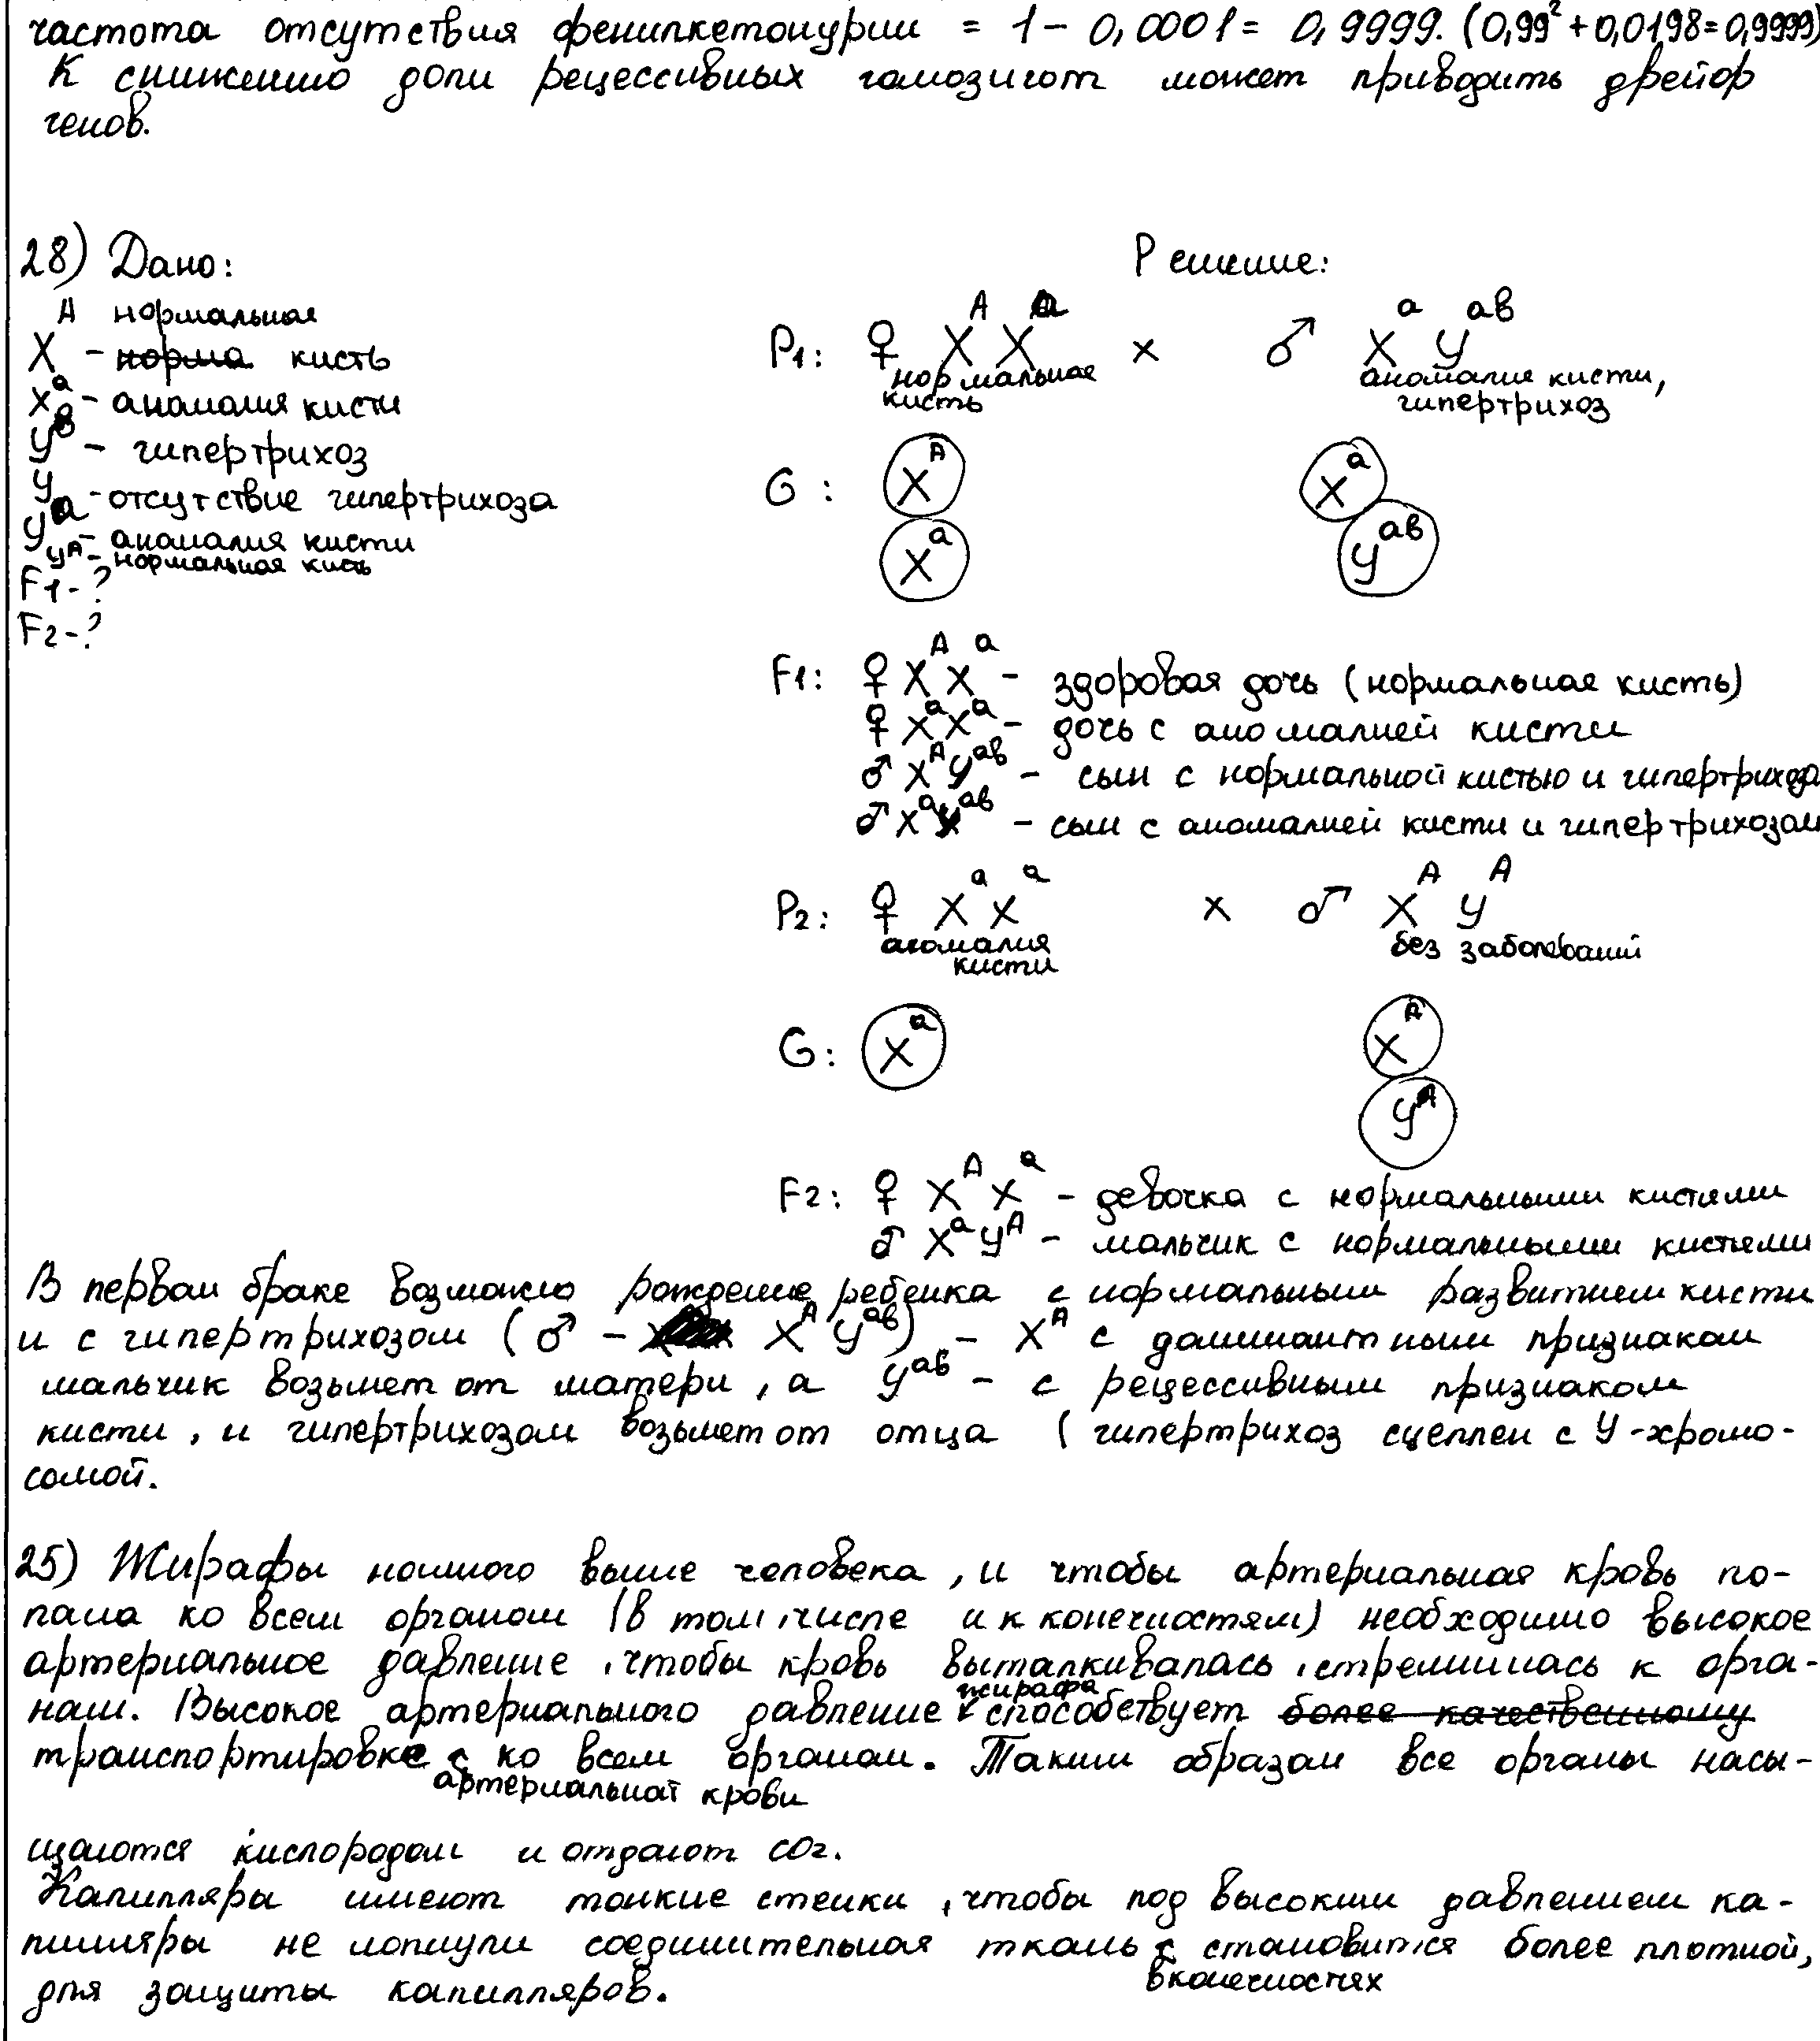 частота отсутствия фенилкетонурии = 1 - 0,0001 = 0,9999. (0,99² + 0,0198 = 0,9999)
К снижению доли рецессивных гомозигот может приводить дрейф
генов.
28) Дано:
Решение:
X^A - нормальная ~~норма~~ кисть
X^a - аномалия кисти
У^в - гипертрихоз
У - отсутствие гипертрихоза
У^а - аномалия кисти
У^А - нормальная кисть
F1 - ?
F2 - ?
P1: ♀ X^A X^a × ♂ X^a У^ав
нормальная кисть
аномалия кисти, гипертрихоз
G: X^A X^a X^a У^ав
F1: ♀ X^A X^a - здоровая дочь (нормальная кисть)
♀ X^a X^a - дочь с аномалией кисти
♂ X^A У^ав - сын с нормальной кистью и гипертрихоза
♂ X^a У^ав - сын с аномалией кисти и гипертрихозом
P2: ♀ X^a X^a × ♂ X^A У^A
аномалия кисти
без заболеваний
G: X^a X^A У^A
F2: ♀ X^A X^a - девочка с нормальными кистями
♂ X^a У^A - мальчик с нормальными кистями
В первом браке возможно рождение ребенка с нормальным развитием кисти
и с гипертрихозом (♂ - X^A У^ав) - X^A с доминантным признаком
мальчик возьмет от матери, а У^ав - с рецессивным признаком
кисти, и гипертрихозом возьмет от отца (гипертрихоз сцеплен с У-хромо-
сомой.
25) Жирафы намного выше человека, и чтобы артериальная кровь по-
пала ко всем органам (в том числе и к конечностям) необходимо высокое
артериальное давление, чтобы кровь выталкивалась, стремилась к орга-
нам. Высокое артериального давление жирафа способствует ~~более качественному~~
транспортировке артериальной крови ко всем органам. Таким образом все органы насы-
щаются кислородом и отдают CO2.
Капилляры имеют тонкие стенки, чтобы под высоким давлением ка-
пилляры не лопнули соединительная ткань в конечностях становится более плотной,
для защиты капилляров.